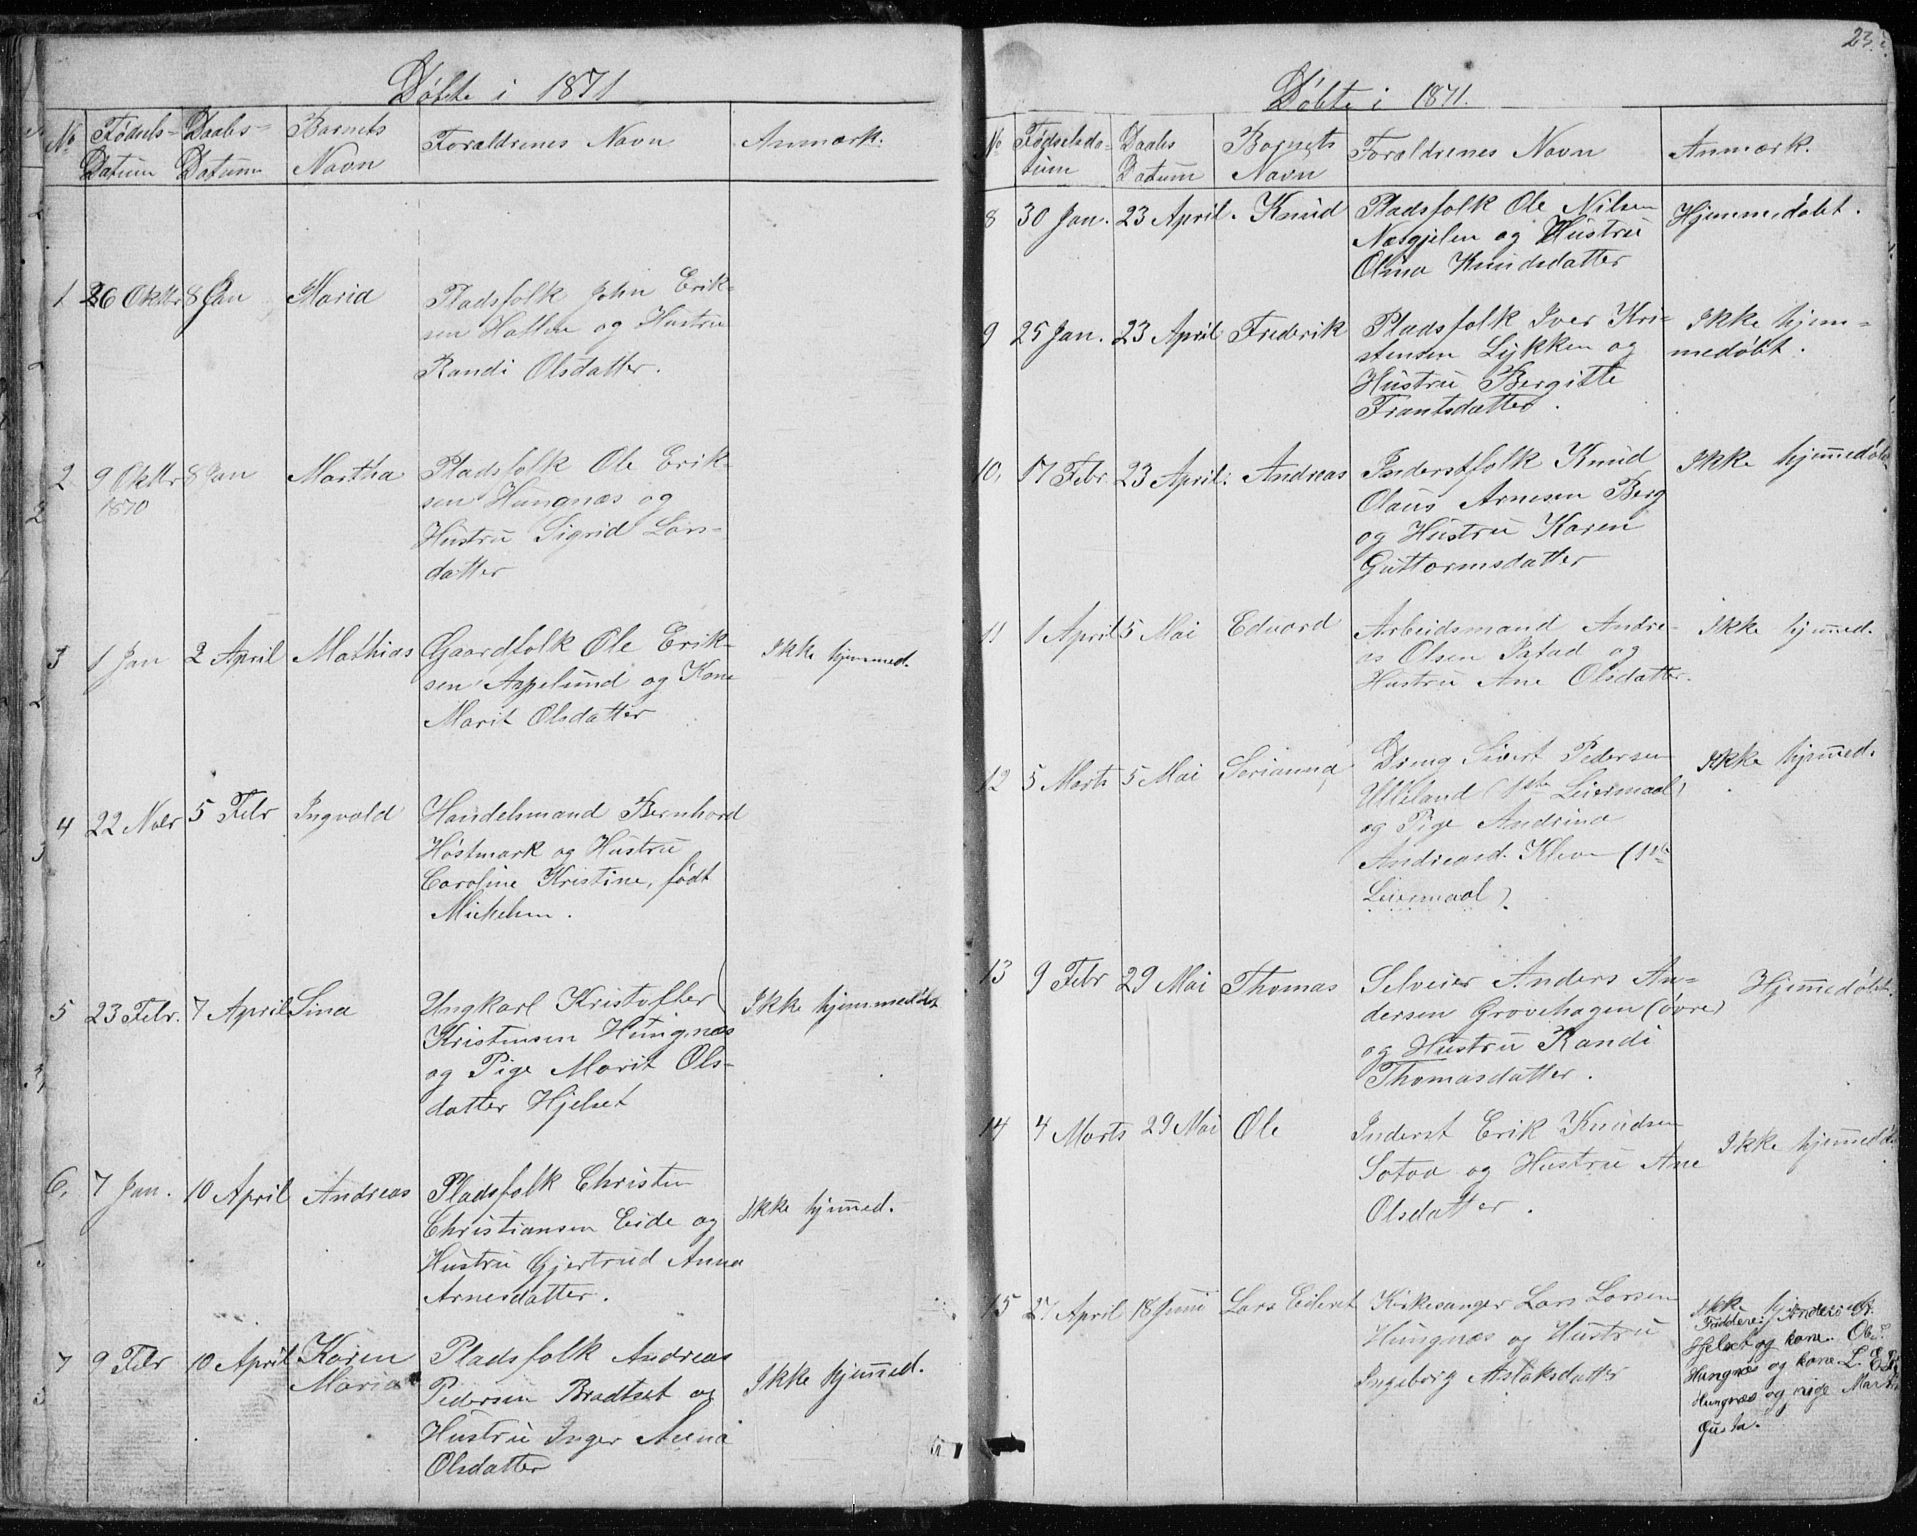 Døbte i 1871
No Fødsels- Daabs- Barnets Forældrenes Navn Anmærk.
Datum Datum Navn
1 26 Oktbr 8 Jan Maria Pladsfolk John Erik-
sen Hatlen og Hustru
Randi Olsdatter.
2 9 Oktbr 8 Jan Martha Pladsfolk Ole Erik-
1870 sen Hungnæs og
Hustru Sigrid Lars-
datter
3 1 Jan 2 April Mathias Gaardfolk Ole Erik- Ikke hjemmed.
sen Aspelund og Kone
Marit Olsdatter
4 22 Novbr 5 Febr Ingvald Handelsmand Bernhard
Høstmark og Hustru
Caroline Kristine, født
Mickelsen.
5 23 Febr. 7 April Sina Ungkarl Kristoffer Ikke hjemmedøbt
Kristensen Hungnæs
og Pige Marit Ols-
datter Hjelset
6, 7 Jan. 10 April Andreas Pladsfolk Christen
Christiansen Eide og Ikke hjemmed.
Hustru Gjertrud Anna
Arnesdatter.
7 9 Febr 10 April Karen Pladsfolk Andreas Ikke hjemmed.
Maria Pedersen Bradtset og
Hustru Inger Anna
Olsdatter
23.
Døbte i 1871.
No Fødselsda- Daabs Barnets Forældrenes Navn Anmærk.
tum Datum Navn
8 30 Jan. 23 April. Knud Pladsfolk Ole Nilsen Hjemmedøbt.
Næsgjelen og Hustru
Olina Knudsdatter
9 25 Jan. 23 April Frederik Pladsfolk Iver Kri- Ikke hjem-
stensen Lykken og medøbt.
Hustru Bergitte
Frantsdatter.
10, 17 Febr. 23 April: Andreas Inderstfolk Knud Ikke hjemmedøbt
Olaus Arnesen Berg
og Hustru Karen
Guttormsdatter
11 1 April 5 Mai Edvard Arbeidsmand Andre- Ikke hjemmed.
as Olsen Istad og
Hustru Ane Olsdatter.
12 5 Marts 5 Mai Serianna Dreng Sivert Pedersen Ikke hjemmed.
Ulleland (1ste Leiermaal)
og Pige Andrina
Andreasd. Kleve (1ste
Leiermaal).
13 9 Febr 29 Mai Thomas Selveier Anders An- Hjemmedøbt.
dersen Grovehagen (øvre)
og Hustru Randi
Thomasdatter.
14 4 Marts 29 Mai Ole Inderst Erik Knudsen Ikke hjemmedøbt
Sotaa og Hustru Ane
Olsdatter.
15 27 April 18 Juni Lars Eideret Kirkesanger Lars Larsen Ikke hjemmed.
Hungnæs og Hustru Faddere: Anders O.
Ingeborg Aslaksdatter Hjelset og kone. Ole
Hungnæs og kone. L. E.
Hungnæs og pige Marta
Gusta.